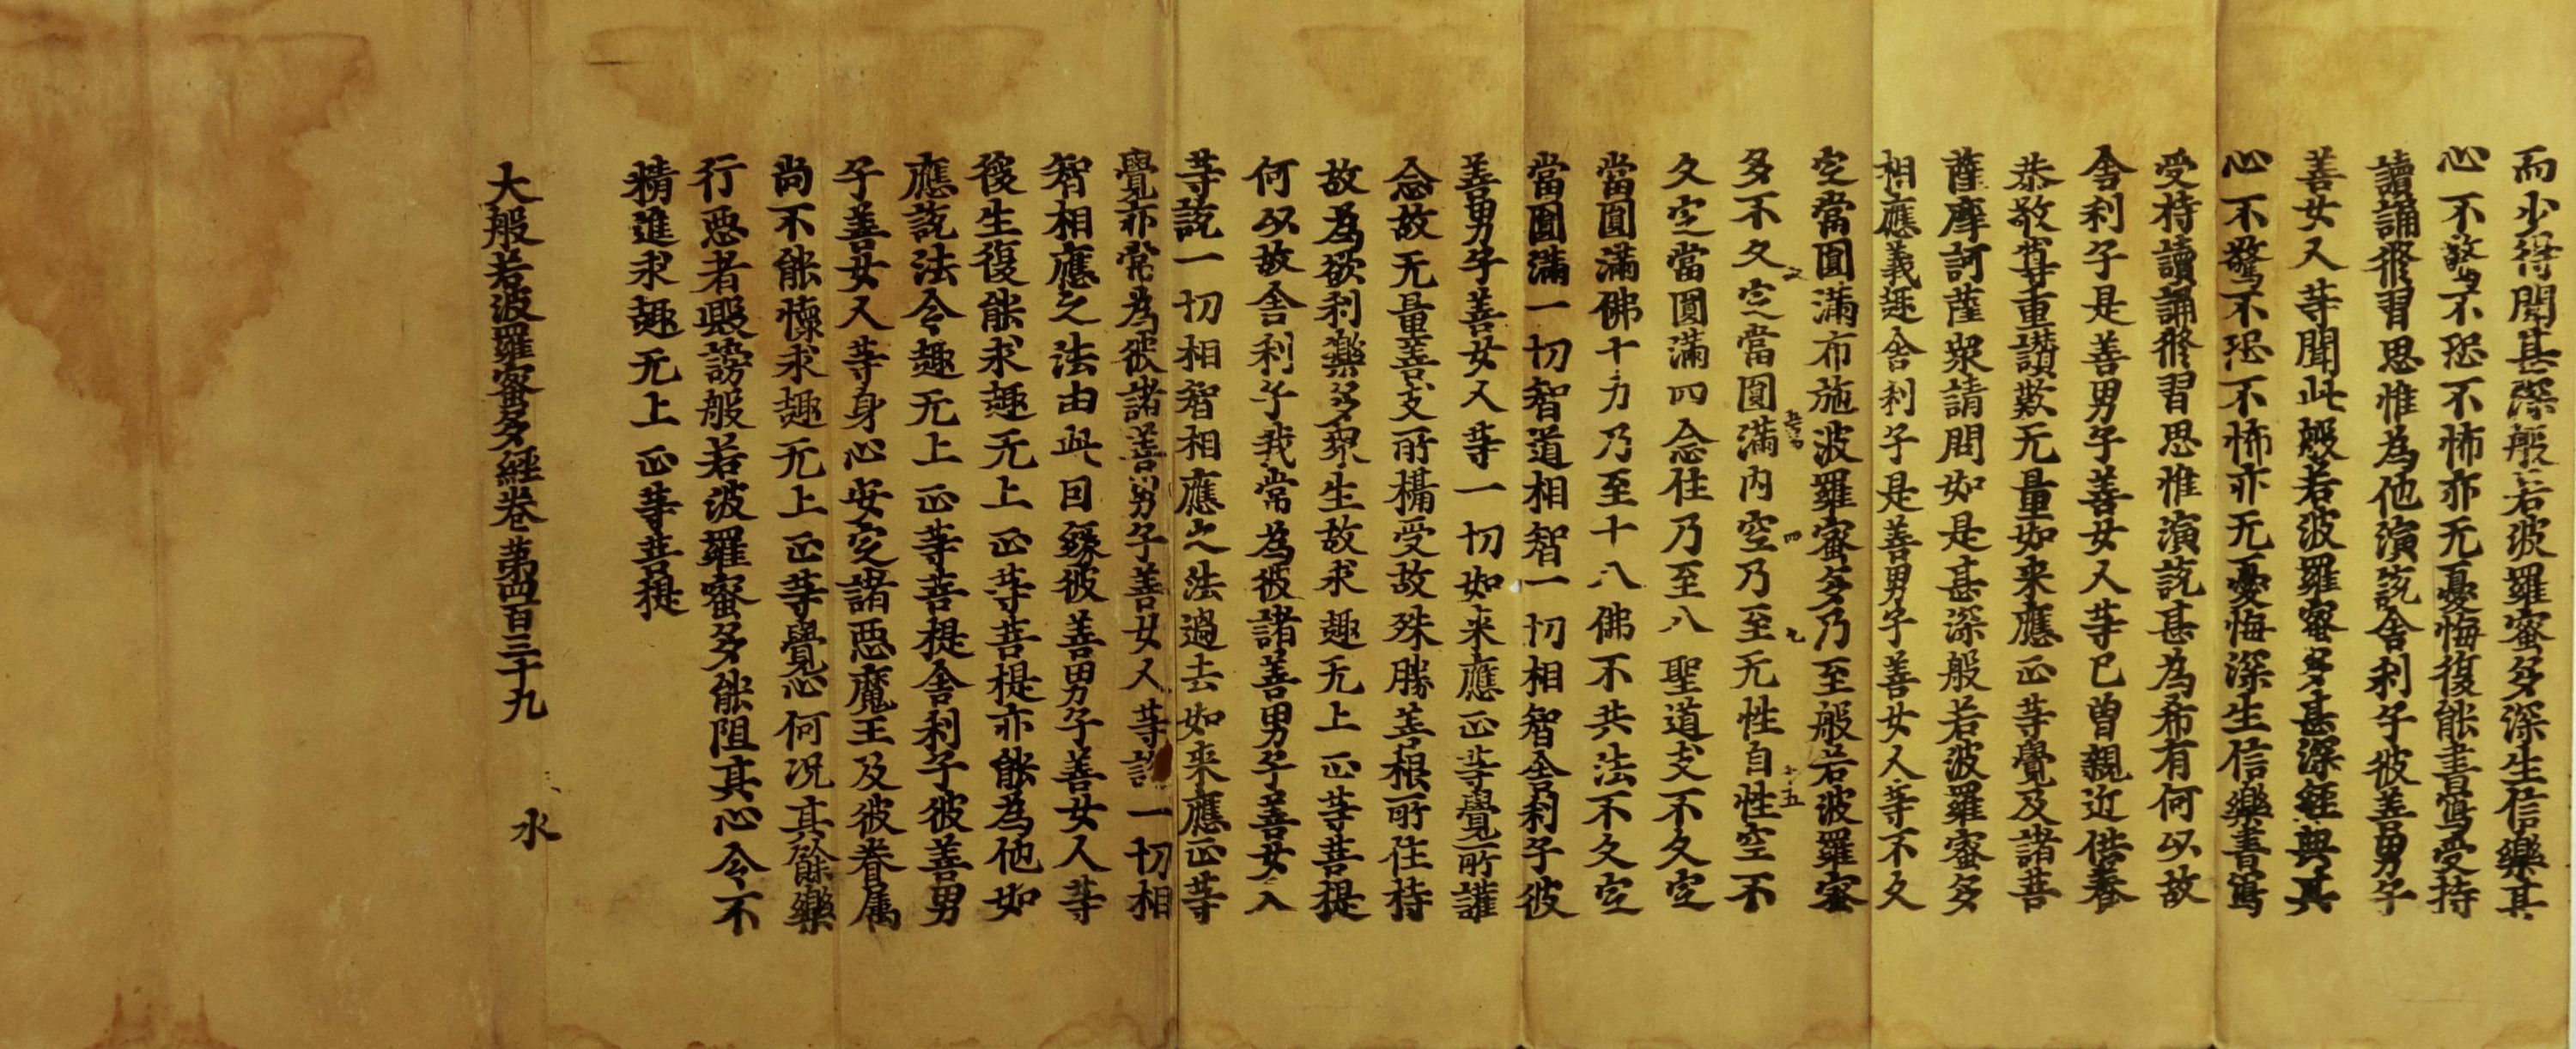 而少得聞甚深般若波羅蜜多深生信樂其
心不驚不恐不怖亦无憂悔復能書寫受持
讀誦修習思惟為他演説舍利子彼善男子
善女人等聞此般若波羅蜜多甚深經典其
心不驚不恐不怖亦无憂悔深生信樂書寫
受持讀誦修習思惟演説甚為希有何以故
舍利子是善男子善女人等已曾親近供養
恭敬尊重讃歎无量如来應正等覺及諸菩
薩摩訶薩衆請問如是甚深般若波羅蜜多
相應義趣舍利子是善男子善女人等不久
定當圓滿布施波羅蜜多乃至般若波羅蜜
多不久定當圓滿内空乃至无性自性空不
久定當圓滿四念住乃至八聖道支不久定
當圓滿佛十力乃至十八佛不共法不久定
當圓滿一切智道相智一切相智舍利子彼
善男子善女人等一切如来應正等覺所護
念故无量善支所攝受故殊勝善根所住持
故為欲利樂多衆生故求趣无上正等菩提
何以故舍利子我常為彼諸善男子善女人
等説一切相智相應之法過去如来應正等
覺亦常為彼諸善男子善女人等説一切相
智相應之法由此因緣彼善男子善女人等
後生復能求趣无上正等菩提亦能為他如
應説法令趣无上正等菩提舍利子彼善男
子善女人等身心安定諸惡魔王及彼眷属
尚不能懷求趣无上正等覺心何况其餘樂
行惡者毀謗般若波羅蜜多能阻其心令不
精進求趣无上正等菩提
大般若波羅蜜多經卷第四百三十九
水